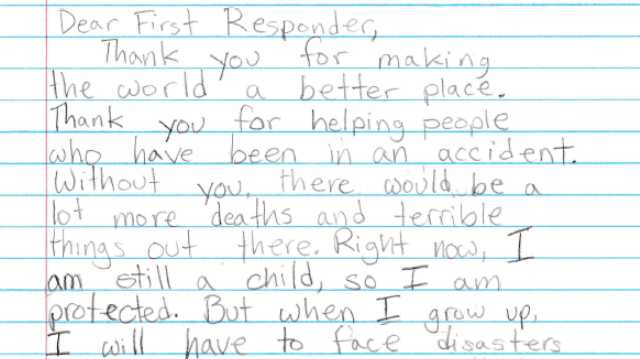 Dear First Responder,
Thank you for making
the world a better place.
Thank you for helping people
who have been in an accident.
Without you, there would be a
lot more deaths and terrible
things out there. Right now, I
am still a child, so I am
protected. But when I grow up,
I will have to face disasters